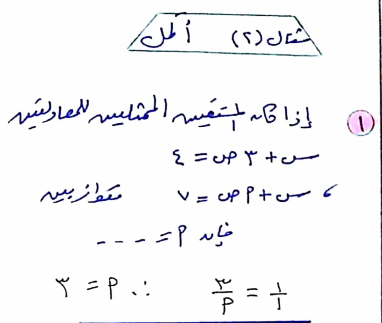 مثال (٢) أكمل
١ إذا كان المستقيمين الممثليين للمعادلتين
س + ٣ ص = ٤
، س + م ص = ٧ متوازيين
فإن م = ----
١/١ = ٣/م ∴ م = ٣